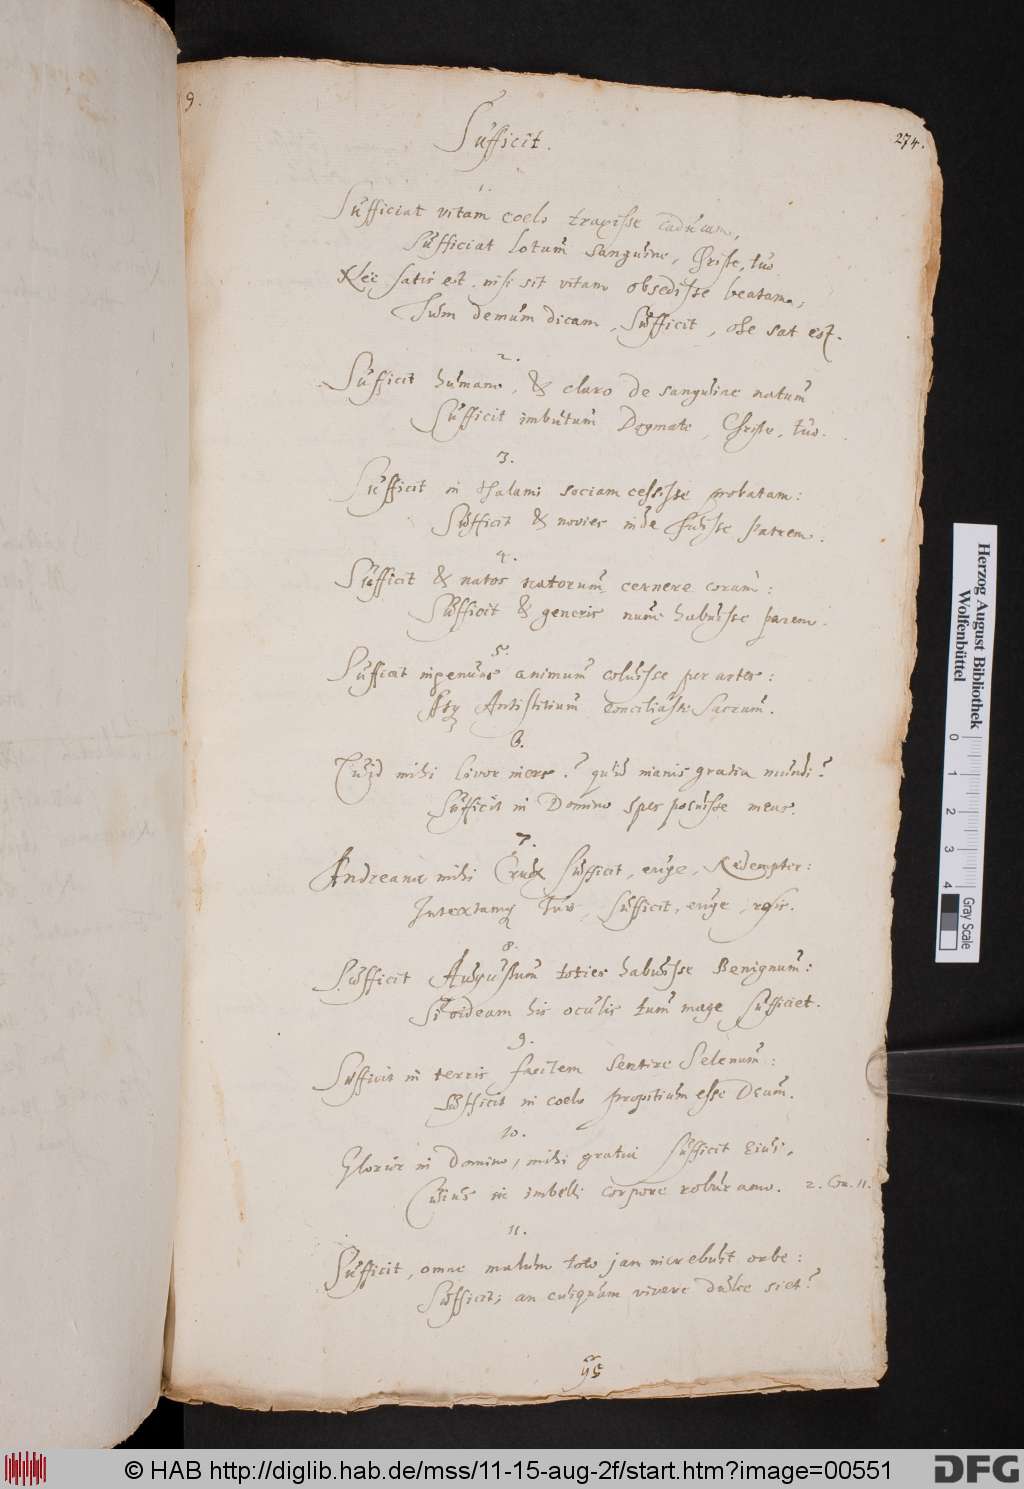 9.
274.
Sufficit.
1.
Sufficiat vitam coelo traxisse caducam,
Sufficiat lotum sanguine, Christe, tuo
Nec satis est, nisi sit vitam obsedisse beatam,
Tum demum dicam, Sufficit, ohe sat est.
2.
Sufficit humano, & claro de sanguine natum
Sufficit imbutum Dogmate, Christe, tuo.
3.
Sufficit in thalami sociam cessisse probatam:
Sufficit & novies inde fuisse patrem.
4.
Sufficit & natos natorum cernere coram:
Sufficit & generis nunc habuisse parem.
5.
Sufficit ingenuas animum coluisse per artes:
Antistitium conciliasse Sacrum.
6.
Quid mihi livor iners? quid inanis gratia mundi?
Sufficit in Domino spes posuisse meas.
7.
Andreana mihi Crux Sufficit, euge, Redemptor:
Intextamq Tuo, Sufficit, euge, rosis.
8.
Sufficit Augustum toties habuisse Benignum:
Si videam his oculis tum mage Sufficiet.
9.
Sufficit in terris facilem sentire Selenum:
Sufficit in coelo propitium esse Deum.
10.
Glorier in Domino, mihi gratia Sufficit Eius,
Cuius in imbelli corpore robur amo. 2. Cor. 11.
11.
Sufficit, omne malum toto jan increbuit orbe:
Sufficit; an cuiquam vivere dulce siet?